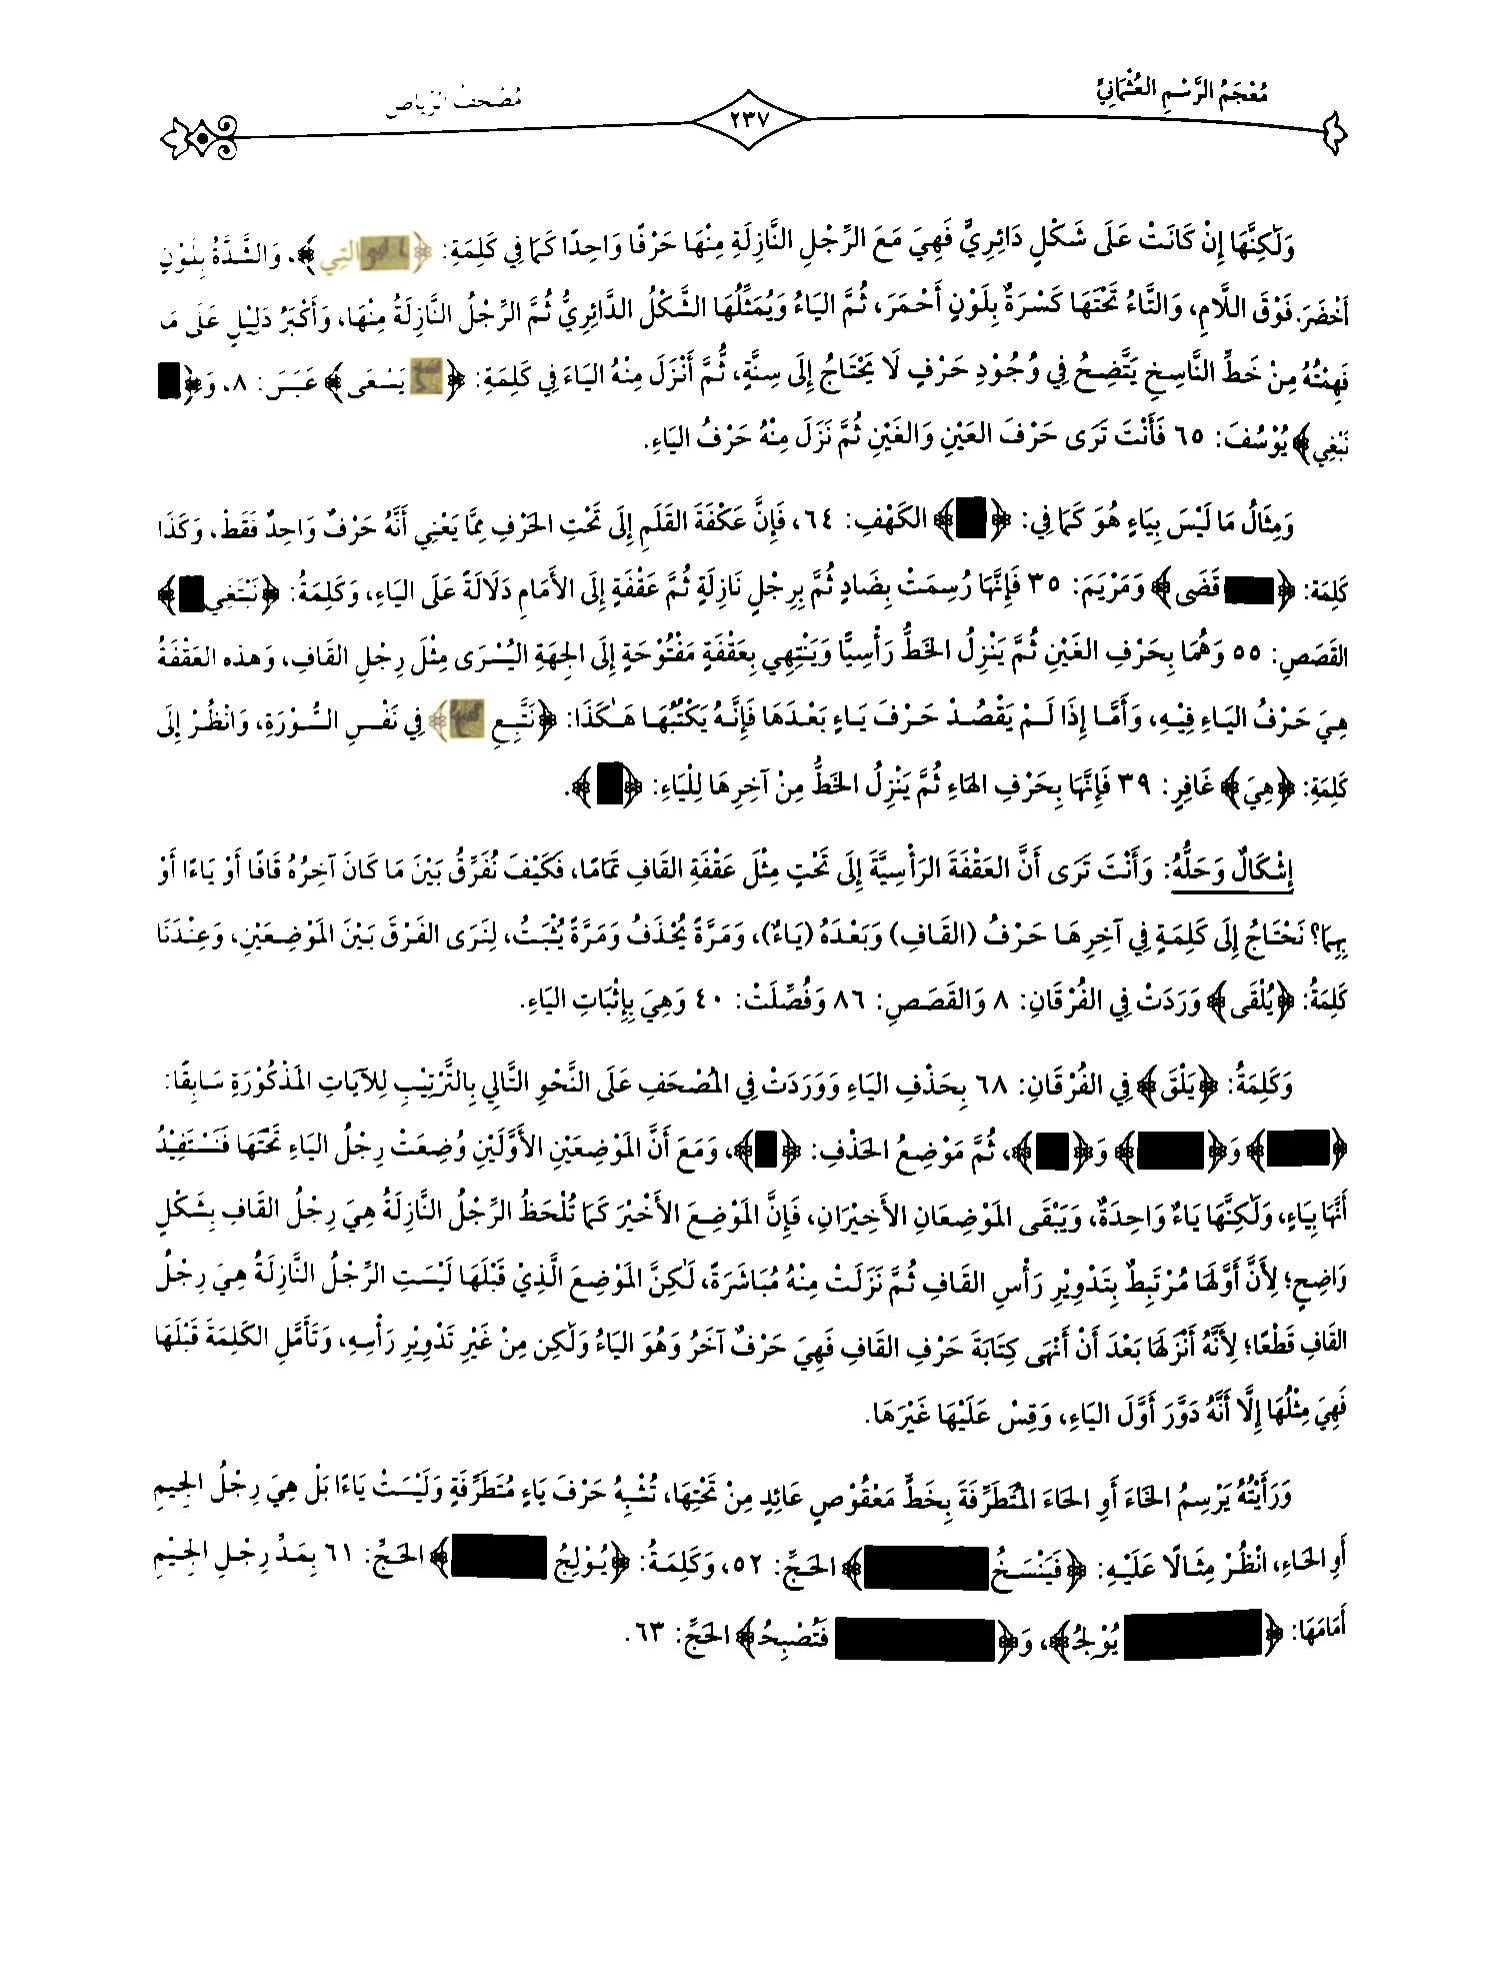 مُعْجَمُ الرَّسْمِ العُثْمَانِيِّ
٢٣٧
مُصْحَفُ الرِّيَاضِ
وَلَكِنَّهَا إِنْ كَانَتْ عَلَى شَكْلٍ دَائِرِيٍّ فَهِيَ مَعَ الرِّجْلِ النَّازِلَةِ مِنْهَا حَرْفًا وَاحِدًا كَمَا فِي كَلِمَةِ: ﴿التِي﴾. وَالشَّدَّةُ بِلَوْنٍ
أَخْضَرَ. فَوْقَ اللَّامِ، وَالتَّاءُ تَحْتَهَا كَسْرَةٌ بِلَوْنٍ أَحْمَرَ، ثُمَّ اليَاءُ وَيُمَثِّلُهَا الشَّكْلُ الدَّائِرِيُّ ثُمَّ الرِّجْلُ النَّازِلَةُ مِنْهَا، وَأَكْبَرُ دَلِيْلٍ عَلَى مَ
فَهِمْتُهُ مِنْ خَطِّ النَّاسِخِ يَتَّضِحُ فِي وُجُوْدِ حَرْفٍ لَا يَحْتَاجُ إِلَى سِنَّةٍ، ثُمَّ أَنْزَلَ مِنْهُ اليَاءَ فِي كَلِمَةِ: ﴿يَسْعَى﴾ عَبَسَ: ٨، وَ﴿
نَبْغِي﴾ يُوْسُفَ: ٦٥ فَأَنْتَ تَرَى حَرْفَ العَيْنِ وَالغَيْنِ ثُمَّ نَزَلَ مِنْهُ حَرْفُ اليَاءِ.
وَمِثَالُ مَا لَيْسَ بِيَاءٍ هُوَ كَمَا فِي: ﴿ ﴾ الكَهْفِ: ٦٤، فَإِنَّ عَكْفَةَ القَلَمِ إِلَى تَحْتِ الحَرْفِ مِمَّا يَعْنِي أَنَّهُ حَرْفٌ وَاحِدٌ فَقَطْ، وَكَذَا
كَلِمَةَ: ﴿ قَضَى﴾ وَمَرْيَمَ: ٣٥ فَإِنَّهَا رُسِمَتْ بِضَادٍ ثُمَّ بِرِجْلٍ نَازِلَةٍ ثُمَّ عَقْفَةٍ إِلَى الأَمَامِ دَلَالَةً عَلَى اليَاءِ، وَكَلِمَةُ: ﴿نَبْتَغِي ﴾
القَصَصِ: ٥٥ وَهُمَا بِحَرْفِ الغَيْنِ ثُمَّ يَنْزِلُ الخَطُّ رَأْسِيًّا وَيَنْتَهِي بِعَقْفَةٍ مَفْتُوْحَةٍ إِلَى الجِهَةِ اليُسْرَى مِثْلَ رِجْلِ القَافِ، وَهذه العَقْفَةُ
هِيَ حَرْفُ اليَاءِ فِيْهِ، وَأَمَّا إِذَا لَمْ يَقْصُدْ حَرْفَ يَاءٍ بَعْدَهَا فَإِنَّهُ يَكْتُبُهَا هَكَذَا: ﴿نَتَّبِعِ ﴾ فِي نَفْسِ السُّوْرَةِ، وَانْظُرْ إِلَى
كَلِمَةِ: ﴿هِيَ﴾ غَافِرٍ: ٣٩ فَإِنَّهَا بِحَرْفِ الهَاءِ ثُمَّ يَنْزِلُ الخَطُّ مِنْ آخِرِهَا لِلْيَاءِ: ﴿ ﴾.
إِشْكَالٌ وَحَلُّهُ: وَأَنْتَ تَرَى أَنَّ العَقْفَةَ الرَأْسِيَّةَ إِلَى تَحْتٍ مِثْلَ عَقْفَةِ القَافِ تَمَامًا، فَكَيْفَ نُفَرِّقُ بَيْنَ مَا كَانَ آخِرُهُ قَافًا أَوْ يَاءًا أَوْ
بِهِمَا؟ نَحْتَاجُ إِلَى كَلِمَةٍ فِي آخِرِهَا حَرْفُ (القَافِ) وَبَعْدَهُ (يَاءٌ)، وَمَرَّةً يُحْذَفُ وَمَرَّةً يُثْبَتُ، لِنَرَى الفَرْقَ بَيْنَ المَوْضِعَيْنِ، وَعِنْدَنَا
كَلِمَةُ: ﴿يُلْقَى﴾ وَرَدَتْ فِي الفُرْقَانِ: ٨ وَالقَصَصِ: ٨٦ وَفُصِّلَتْ: ٤٠ وَهِيَ بِإِثْبَاتِ اليَاءِ.
وَكَلِمَةُ: ﴿يَلْقَ﴾ فِي الفُرْقَانِ: ٦٨ بِحَذْفِ اليَاءِ وَوَرَدَتْ فِي المُصْحَفِ عَلَى النَّحْوِ التَّالِي بِالتَّرْتِيْبِ لِلآيَاتِ المَذْكُوْرَةِ سَابِقًا:
﴿ ﴾ وَ﴿ ﴾ وَ﴿ ﴾، ثُمَّ مَوْضِعُ الحَذْفِ: ﴿ ﴾، وَمَعَ أَنَّ المَوْضِعَيْنِ الأَوَّلَيْنِ وُضِعَتْ رِجْلُ اليَاءِ تَحْتَهَا فَنَسْتَفِيْدُ
أَنَّهَا بِيَاءٍ، وَلَكِنَّهَا يَاءٌ وَاحِدَةٌ، وَيَبْقَى المَوْضِعَانِ الأَخِيْرَانِ، فَإِنَّ المَوْضِعَ الأَخْيَرَ كَمَا تُلْحَظُ الرِّجْلُ النَّازِلَةُ هِيَ رِجْلُ القَافِ بِشَكْلٍ
وَاضِحٍ؛ لِأَنَّ أَوَّلَهَا مُرْتَبِطٌ بِتَدْوِيْرِ رَأْسِ القَافِ ثُمَّ نَزَلَتْ مِنْهُ مُبَاشَرَةً، لَكِنَّ المَوْضِعَ الَّذِيْ قَبْلَهَا لَيْسَتِ الرِّجْلُ النَّازِلَةُ هِيَ رِجْلُ
القَافِ قَطْعًا؛ لِأَنَّهُ أَنْزَلَهَا بَعْدَ أَنْ أَنْهَى كِتَابَةَ حَرْفِ القَافِ فَهِيَ حَرْفٌ آخَرُ وَهُوَ اليَاءُ وَلَكِن مِنْ غَيْرِ تَدْوِيْرِ رَأْسِهِ، وَتَأَمَّلِ الكَلِمَةَ قَبْلَهَا
فَهِيَ مِثْلُهَا إِلَّا أَنَّهُ دَوَّرَ أَوَّلَ اليَاءِ، وَقِسْ عَلَيْهَا غَيْرَهَا.
وَرَأَيْتُهُ يَرْسِمُ الخَاءَ أَوِ الحَاءَ المُتَطَرِّفَةَ بِخَطٍّ مَعْقُوْصٍ عَائِدٍ مِنْ تَحْتِهَا، تُشْبِهُ حَرْفَ يَاءٍ مُتَطَرِّفَةٍ وَلَيْسَتْ يَاءًا بَلْ هِيَ رِجْلُ الجِيمِ
أَوِ الحَاءِ، انْظُرْ مِثَالًا عَلَيْهِ: ﴿فَيَنْسَخُ ﴾ الحَجِّ: ٥٢، وَكَلِمَةُ: ﴿يُوْلِجُ ﴾ الحَجِّ: ٦١ بِمَدِّ رِجْلِ الجِيْمِ
أَمَامَهَا: ﴿ يُوْلِجُ﴾، وَ﴿ فَتُصْبِحُ﴾ الحَجِّ: ٦٣.